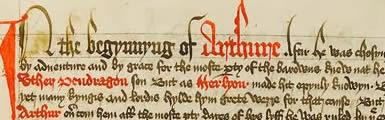 In the begynnyng of Arthure Afar he was chosyn
by adventure and by grace for the moste pty of the barowns knew nat he
Uther Pendragon son But as Merlyon made hit opynly knowyn
yet many kyngis and lordis hylde hym grete werre for that cause But
Arthur on com hem all the moste pty dayes of hys lyff he was ruled by